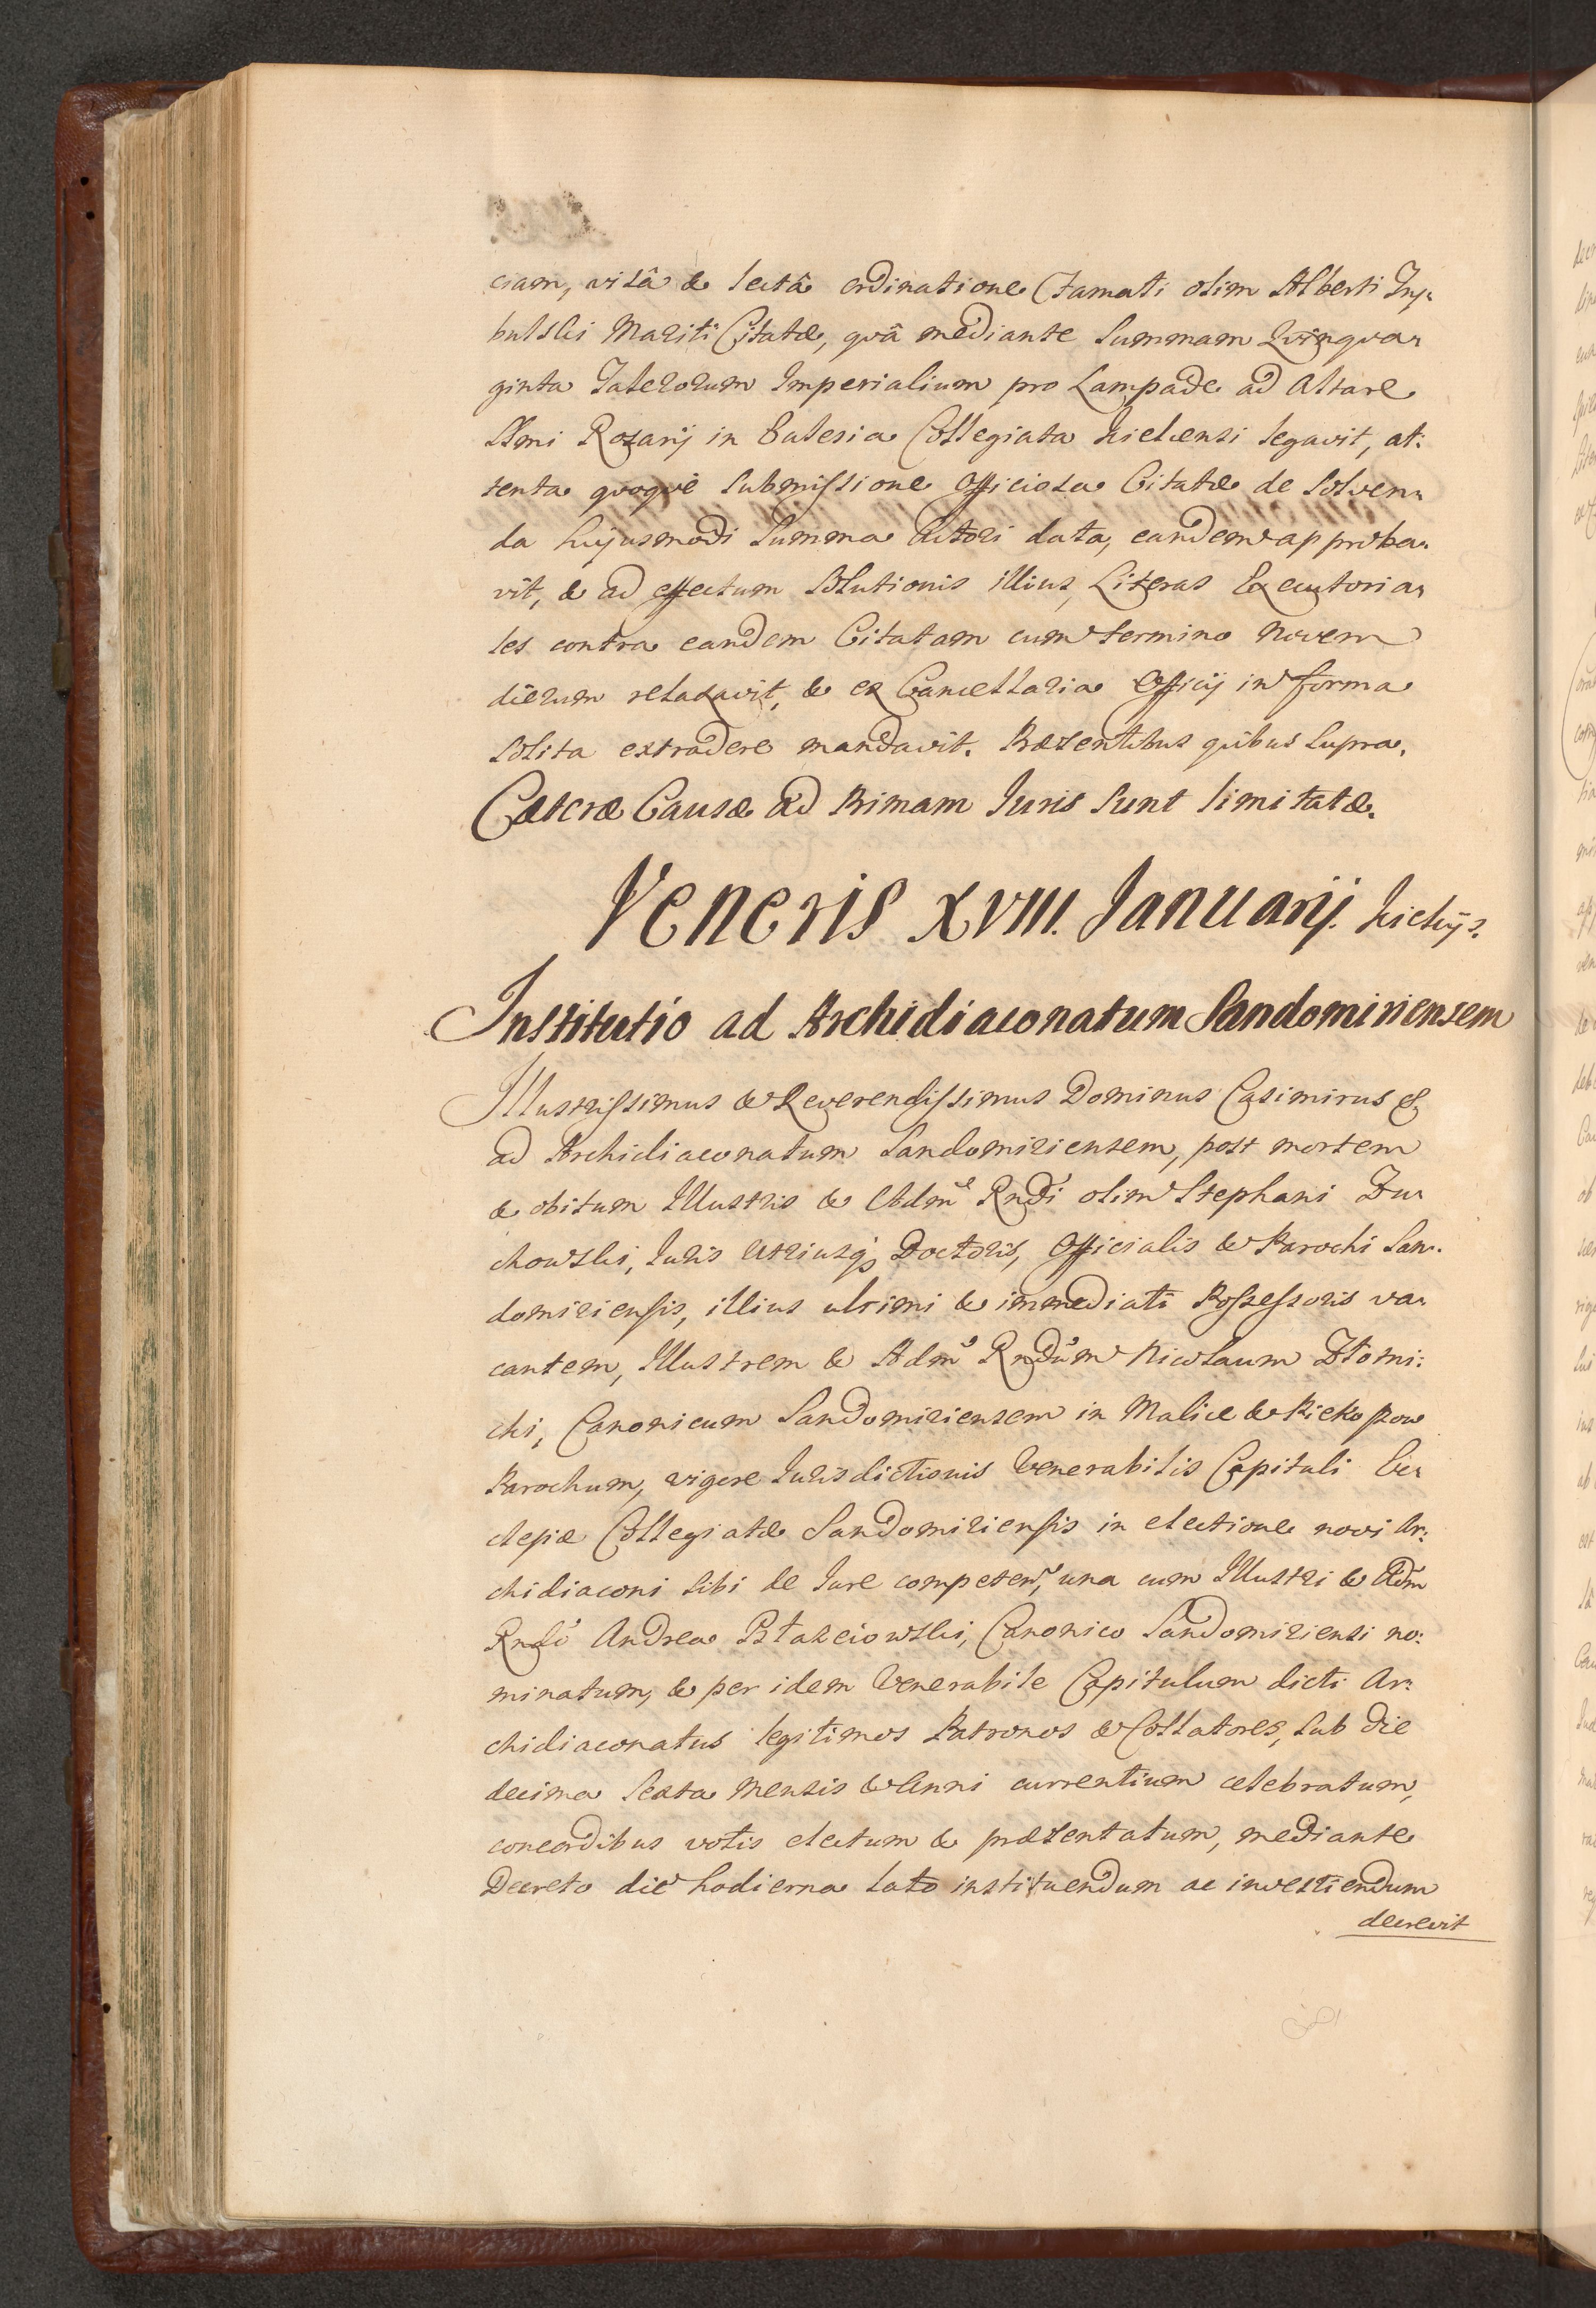 ciam, visâ & lectâ ordinatione Famati olim Alberti Try-
bulski Mariti Citatæ, qvâ mediante Summam Qvinqva-
ginta Talerorum Imperialium pro Lampade ad Altare
SSmi Rozarij in Eclesia Collegiata Kielcensi legavit, at:
tenta qvoqve Submissione Officiosa Citatæ de Solven-
da hujusmodi Summa Actori data, eandem approba-
vit, & ad effectum Solutionis illius, Literas Executoria-
les contra eandem Citatam cum termino Novem
dierum relaxavit, & ex Cancellaria Officij in forma
Solita extradere mandavit. Præsentibus quibus Supra.
Cæteræ Causæ ad Primam Juris Sunt limitatæ.
Veneris XVIII. Januarij. Kielcijs.
Institutio ad Archidiaconatum Sandomiriensem
Illustrissimus & Reverendissimus Dominus Casimirus &
ad Archidiaconatum Sandomiriensem, post mortem
& obitum Illustris & Adm Rndi olim Stephani Zu-
chowski, Juris Utriusq Doctoris, Officialis & Parochi San-
domiriensis, illius ultimi & immediati Possessoris va-
cantem, Illustrem & Adm Rndum Nicolaum
chi, Canonicum Sandomiriensem in Malice &
Parochum, vigore Jurisdictionis Venerabilis Capituli Ec-
clesiæ Collegiatæ Sandomiriensis in electione novi Ar:
chidiaconi Sibi de Jure competen, una cum Illustri & Adm
Rndo Andrea Ptaszciowski, Canonico Sandomiriensi no:
minatum, & per idem Venerabile Capitulum dicti Ar:
chidiaconatus legitimos Patronos & Collatores, Sub die
decima Sexta Mensis & Anni currentium celebratum,
concordibus votis electum & præsentatum, mediante
Decreto die hodierna lato instituendum ac investiendum
decrevit